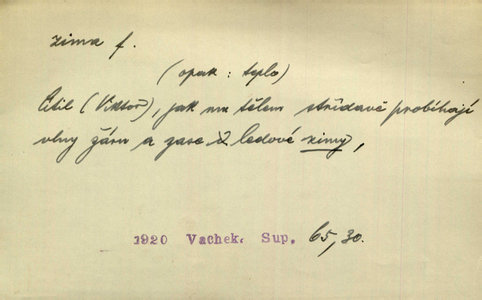 zima f.
(opak: teplo)
Cítil (Viktor), jak mu tělem střídavě probíhají
vlny žáru a zase ledové zimy,
1920 Vachek. Sup. 65,30.